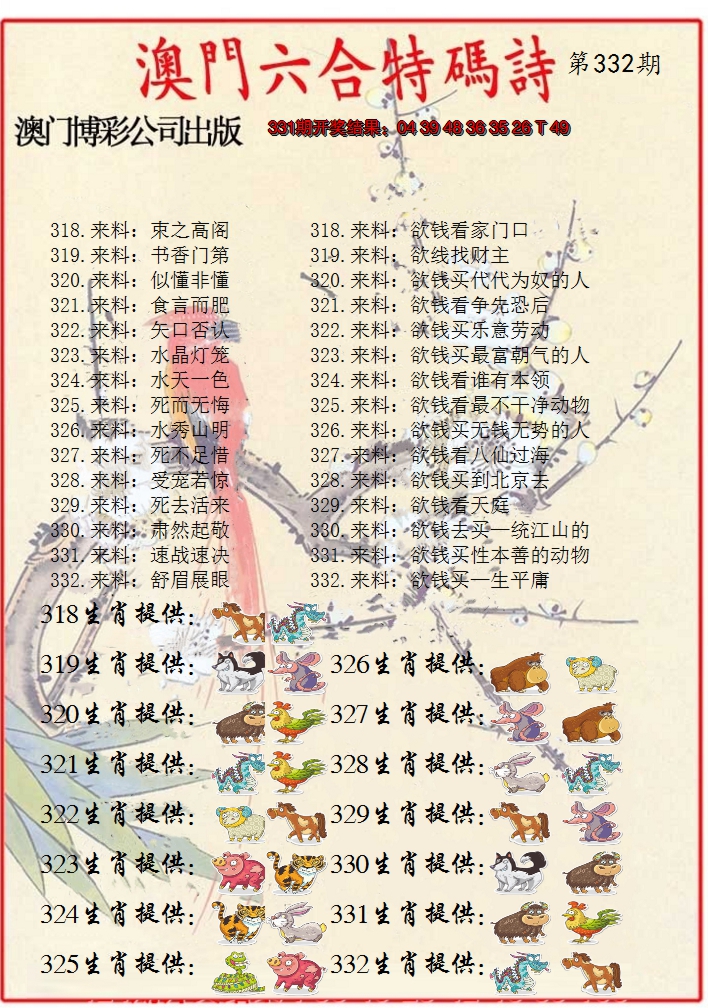 澳門六合特碼詩 第332期
澳门博彩公司出版 331期开奖结果：04 39 48 36 35 26 T 49
318.来料：束之高阁 318.来料：欲钱看家门口
319.来料：书香门第 319.来料：欲线找财主
320.来料：似懂非懂 320.来料：欲钱买代代为奴的人
321.来料：食言而肥 321.来料：欲钱看争先恐后
322.来料：矢口否认 322.来料：欲钱买乐意劳动
323.来料：水晶灯笼 323.来料：欲钱买最富朝气的人
324.来料：水天一色 324.来料：欲钱看谁有本领
325.来料：死而无悔 325.来料：欲钱看最不干净动物
326.来料：水秀山明 326.来料：欲钱买无钱无势的人
327.来料：死不足惜 327.来料：欲钱看八仙过海
328.来料：受宠若惊 328.来料：欲钱买到北京去
329.来料：死去活来 329.来料：欲钱看天庭
330.来料：肃然起敬 330.来料：欲钱去买一统江山的
331.来料：速战速决 331.来料：欲钱买性本善的动物
332.来料：舒眉展眼 332.来料：欲钱买一生平庸
318生肖提供：
319生肖提供： 326生肖提供：
320生肖提供： 327生肖提供：
321生肖提供： 328生肖提供：
322生肖提供： 329生肖提供：
323生肖提供： 330生肖提供：
324生肖提供： 331生肖提供：
325生肖提供： 332生肖提供：